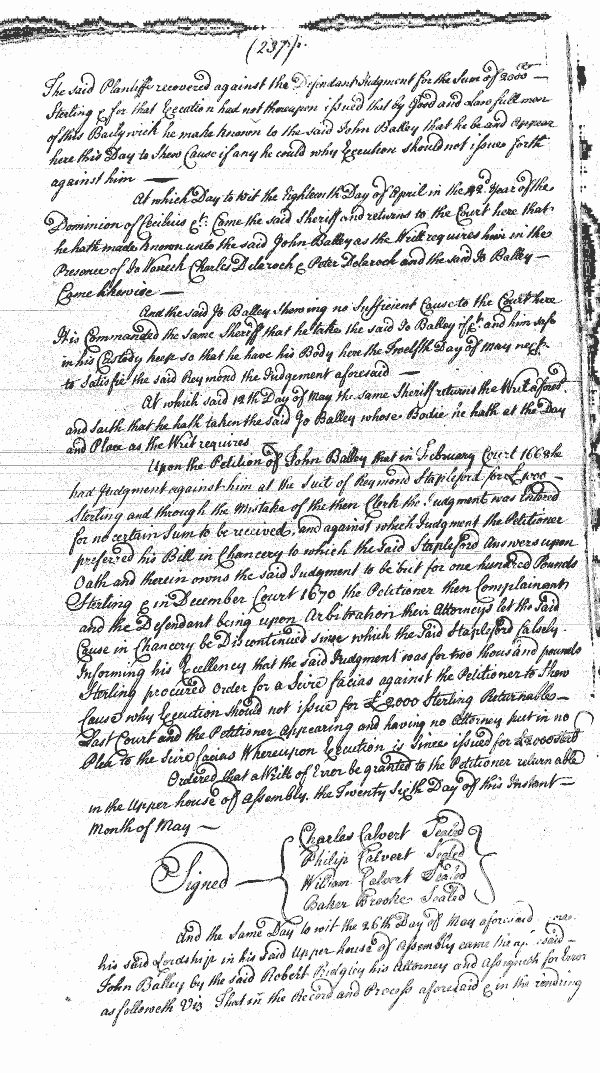 (237)
The said Plantiffe recovered against the Defendant Judgment for the Sum of 2000 —
Sterling & for that Execution had not thereupon issued that by Good and Lawfull men
of this Baylywick he make known to the said John Balley that he be and appear
here this Day to Shew Cause if any he could why Execution should not issue forth
against him —
At which Day to wit the Eighteenth Day of April in the 42d Year of the
Dominion of Cecilius &c: Came the said Sheriff and returns to the Court here that
he hath made known unto the said John Balley as the Writ requires him in the
Presence of Jo Vanech Charles Delaroch & Peter Delaroch and the said Jo Balley —
Came likewise —
And the said Jo Balley Shewing no Suffecient Cause to the Court here
It is Commanded the same Sheriff that he take the said Jo Balley if &c. and him safe
in his Custody keep so that he have his Body here the Twelfth Day of May next
to Satisfie the said Reymond the Judgement aforesaid —
At which said 12th Day of May the same Sheriff returns the Writ afores.d
and saith that he hath taken the said Jo Balley whose Bodie he hath at the Day
and Place as the Writ requires
Upon the Petition of John Balley that in February Court 1668 he
had Judgment against him at the Suit of Reymond Stapleford for £100 —
Sterling and through the Mistake of the then Clerk the Judgment was Entered
for no certain Sum to be received, and against which Judgment the Petitioner
preferred his Bill in Chancery to which the said Stapleford Answers upon
Oath and therein owns the said Judgment to be but for one hundred Pounds
Sterling & in December Court 1670 the Petitioner then Complainant
and the Defendant being upon Arbitration their Attorneys let the said
Cause in Chancery be Discontinued since which the said Stapleford falsely
Informing his Excellency that the said Judgment was for two thousand pounds
Sterling procured Order for a Scire facias against the Petitioner to Shew
Cause why Execution should not issue for £2000 Sterling Returnable —
Last Court and the Petitioner appearing and having no Attorney put in no
Plea to the Scire facias Whereupon Execution is Since issued for £2000 Sterl
Ordered that a Writt of Error be granted to the Petitioner returnable
in the Upper house of Assembly, the Twenty Sixth Day of this Instant —
Month of May —
Signed —
Charles Calvert Sealed
Philip Calvert Sealed
William Calvert Sealed
Baker Brooke Sealed
And the Same Day to wit the 26th Day of May aforesaid
his said Lordship in his said Upper house of Assembly came the said —
John Balley by the said Robert Ridgley his Attorney and Assigneth for Error
as followeth Viz That in the Record and Process aforesaid & in the rendring